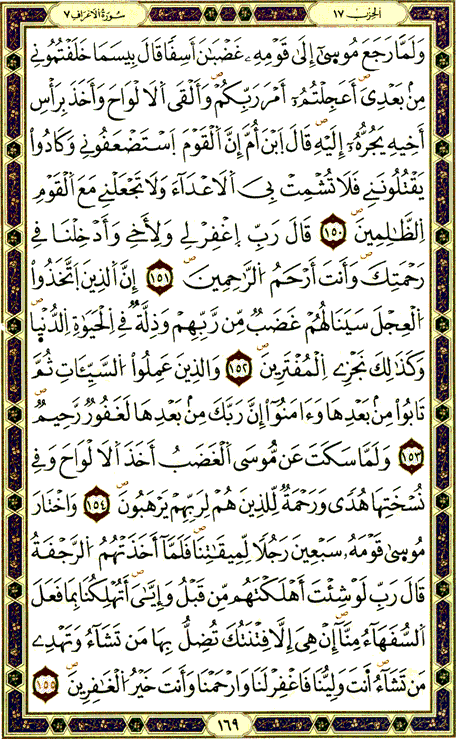 الحِزب ١٧ سُورَةُ الأَعْرَافِ ٧
وَلَمَّا رَجَعَ مُوسَىٰٓ إِلَىٰ قَوْمِهِۦ غَضْبَٰنَ أَسِفٗا قَالَ بِيسَمَا خَلَفْتُمُونِے
مِنۢ بَعْدِيَ أَعَجِلْتُمُۥٓ أَمْرَ رَبِّكُمْ وَأَلْقَى اَلَالْوَاحَ وَأَخَذَ بِرَأْسِ
أَخِيهِ يَجُرُّهُۥٓ إِلَيْهِ قَالَ اَبْنَ أُمَّ إِنَّ اَلْقَوْمَ اَسْتَضْعَفُونِے وَكَادُواْ
يَقْتُلُونَنِے فَلَا تُشْمِتْ بِيَ اَلَاعْدَآءَ وَلَا تَجْعَلْنِے مَعَ اَلْقَوْمِ
اِلظَّٰلِمِينَ ١٥٠ قَالَ رَبِّ اِغْفِرْ لِے وَلِأَخِے وَأَدْخِلْنَا فِے
رَحْمَتِكَ وَأَنتَ أَرْحَمُ اُلرَّٰحِمِينَ ١٥١ إِنَّ اَلذِينَ اَتَّخَذُواْ
اُلْعِجْلَ سَيَنَالُهُمْ غَضَبٞ مِّن رَّبِّهِمْ وَذِلَّةٞ فِے اِلْحَيَوٰةِ اِلدُّنْيَا
وَكَذَٰلِكَ نَجْزِے اِلْمُفْتَرِينَ ١٥٢ وَالذِينَ عَمِلُواْ اُلسَّيِّـَٔاتِ ثُمَّ
تَابُواْ مِنۢ بَعْدِهَا وَءَامَنُوٓاْ إِنَّ رَبَّكَ مِنۢ بَعْدِهَا لَغَفُورٞ رَّحِيمٞ
١٥٣ وَلَمَّا سَكَتَ عَن مُّوسَى اَلْغَضَبُ أَخَذَ اَلَالْوَاحَ وَفِے
نُسْخَتِهَا هُدٗى وَرَحْمَةٞ لِّلذِينَ هُمْ لِرَبِّهِمْ يَرْهَبُونَ ١٥٤ وَاخْتَارَ
مُوسَىٰ قَوْمَهُۥ سَبْعِينَ رَجُلٗا لِّمِيقَٰتِنَا فَلَمَّآ أَخَذَتْهُمُ اُلرَّجْفَةُ
قَالَ رَبِّ لَوْ شِئْتَ أَهْلَكْتَهُم مِّن قَبْلُ وَإِيَّٰيَ أَتُهْلِكُنَا بِمَا فَعَلَ
اَلسُّفَهَآءُ مِنَّآ إِنْ هِيَ إِلَّا فِتْنَتُكَ تُضِلُّ بِهَا مَن تَشَآءُ وَتَهْدِے
مَن تَشَآءُ أَنتَ وَلِيُّنَا فَاغْفِرْ لَنَا وَارْحَمْنَا وَأَنتَ خَيْرُ اُلْغَٰفِرِينَ ١٥٥
١٦٩